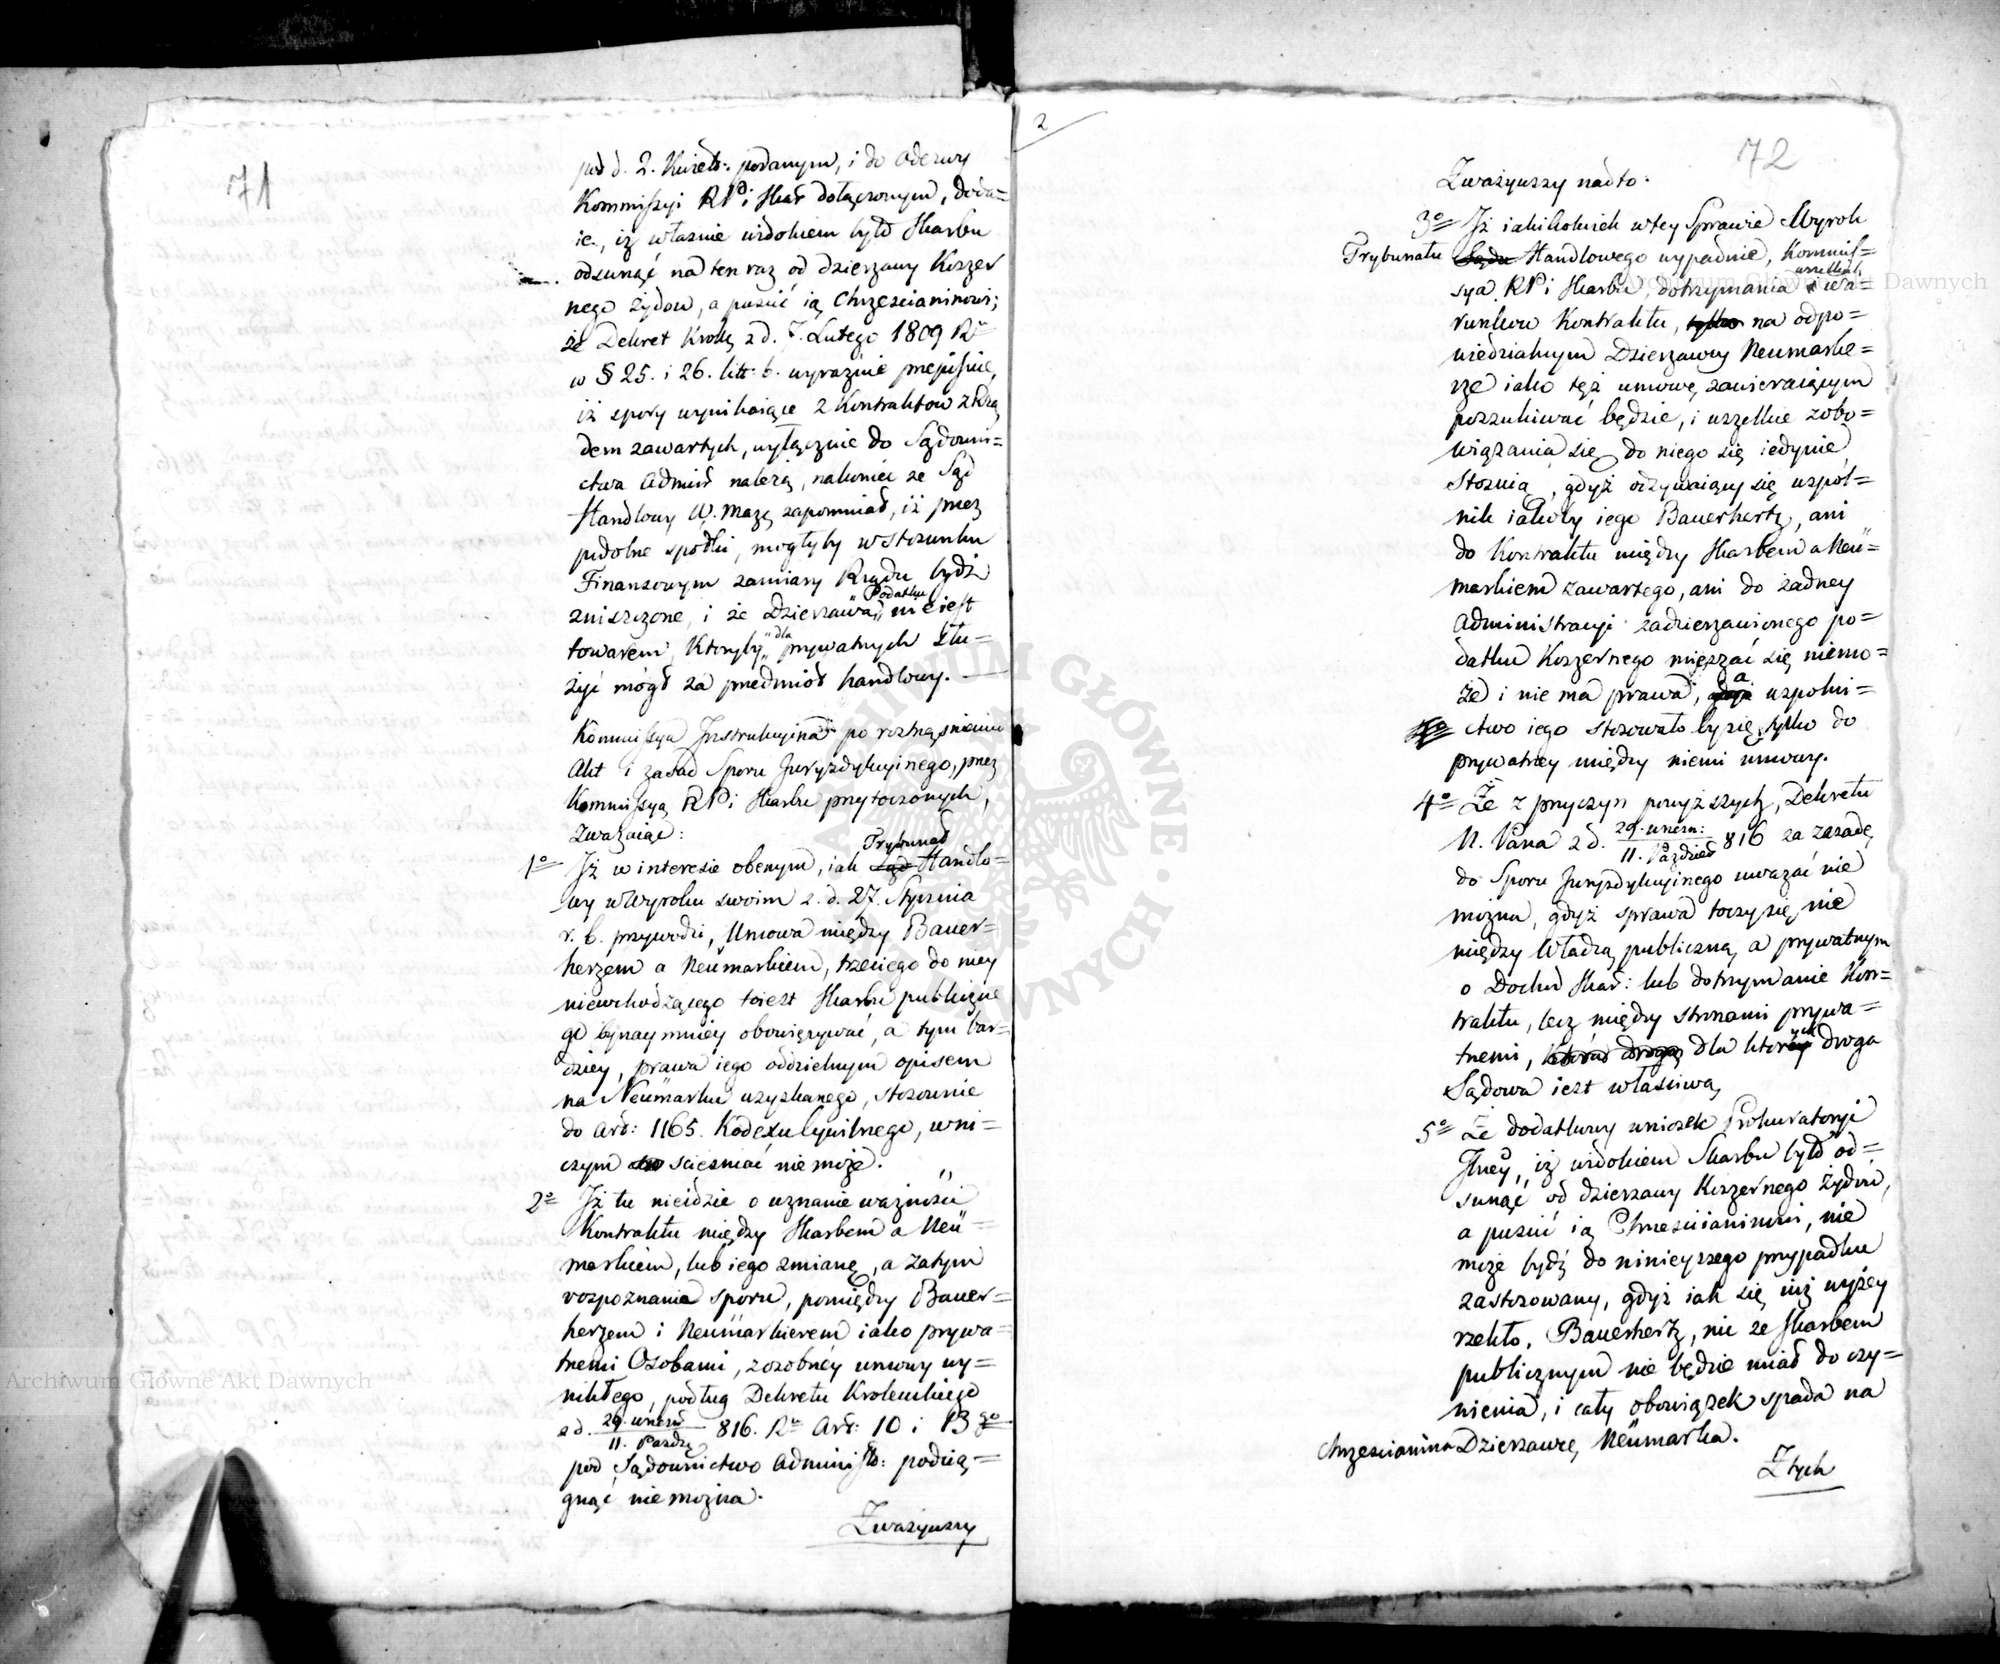 71
pod d. 2. Kwiet: podanym, i do Odezwy
Kommissyi RPd i Skar dołączonym, doda=
ie, iż właśnie widokiem było Skarbu
odsunąć na ten raz od dzierzawy Koszer
nego Żydow, a puścić ią Chrześcianinowi;
że Dekret Krolla z d. 7. Lutego 1809 Rn
w § 25. i 26. litt: b. wyraźnie przepisuie,
iż spory wynikaiące z Kontraktow z Rzą
dem zawartych, wyłącznie do Sądowni=
ctwa Admin należą, nakoniec ze Sąd
Handlowy W. Mazo zapomniał, iż przez
podobne spółki, mogłyby w stosunku
Finansowym zamiary Rządu bydź
zniszczone, i że Dzierzawa Podatku nie iest
towarem, Ktoryby dla prywatnych słu=
żyć mógł za przedmiot handlowy.
Kommissya Instrukcyina po roztrząśnieniu
Akt i zasad Sporu Juryzdykcyinego, przez
Kommissyą RPd i Skarbu przytoczonych,
Zważaiąc:
Trybunał
1o Iż w interesie obecnym, iak Sąd Handlo=
wy w Wyroku swoim z. d. 27. Stycznia
r. b. przywodzi, Umowa między Bauer=
herzem a Neümarkiem, trzeciego do niey
niewchodzącego toiest Skarbu publiczne
go bynaymniey obowięzywać, a tym bar=
dziey, prawa iego oddzielnym opisem
na Neümarku uzyskanego, stosownie
do Art: 1165. Kodexu Cywilnego, w ni=
czym ścieśniać nie może.
2o Iż tu nieidzie o uznanie ważności
Kontraktu między Skarbem a Neü=
markiem, lub iego zmianę, a zatym
rozpoznania sporu, pomiędzy Bauer=
herzem i Neümarkierem iako prywa=
tnemi Osobami, z osobney umowy wy=
nikłego, podług Dekretu Krolewskiego
z d. 29. wrześ / 11. Paźdz 816. Rn Art: 10 i 13go
pod Sądownictwo Administr: podcią=
gnąć nie można.
Zważywszy
2
72
Zważywszy nadto:
3o Iż iakikolwiek w tey Sprawie Wyrok
Trybunału Sądu Handlowego wypadnie, Kommis=
sya RPd i Skarbu, dotrzymania wszelkich wa=
runkow Kontraktu, tylko na odpo=
wiedzialnym Dzierzawcy Neümarke=
rze iako tęż umowę zawieraiącym
poszukiwać będzie, i wszelkie zobo=
wiązania się do niego się iedynie
stosuią, gdyż odzywaiący się wspól=
nik iakoby iego Bauerhertz, ani
do Kontraktu między Skarbem a Neü=
markiem zawartego, ani do żadney
Administracyi zadzierzawionego po=
datku Koszernego mięszać się niemo=
że i nie ma prawa, a wspolni=
ctwo iego stosowało by się tylko do
prywatney między niemi umowy.
4o Że z przyczyn powyższych, Dekretu
N. Pana z d. 29. wrześn: / 11. Paździer 816 za zasadę
do Sporu Juryzdykcyinego uważać nie
można, gdyż sprawa toczy się nie
między Władzą publiczną a prywatnym
o Dochod Skar: lub dotrzymanie Kon=
traktu, lecz między stronami prywa=
tnemi, która droga dla ktorych droga
Sądowa iest właściwą,
5o Że dodatkowy wniosek Prokuratoryi
Jlney, iż widokiem Skarbu było od=
sunąć od dzierzawy Koszernego Żydów,
a puścić ią Chrześcianinowi, nie
może bydź do ninieyszego przypadku
zastosowany, gdyż iak się iuż wyżey
rzekło, Bauerhertz, nic ze Skarbem
publicznym nie będzie miał do czy=
nienia, i cały obowiązek spada na
Chrześcianina Dzierzawcę Neümarka.
Z tych